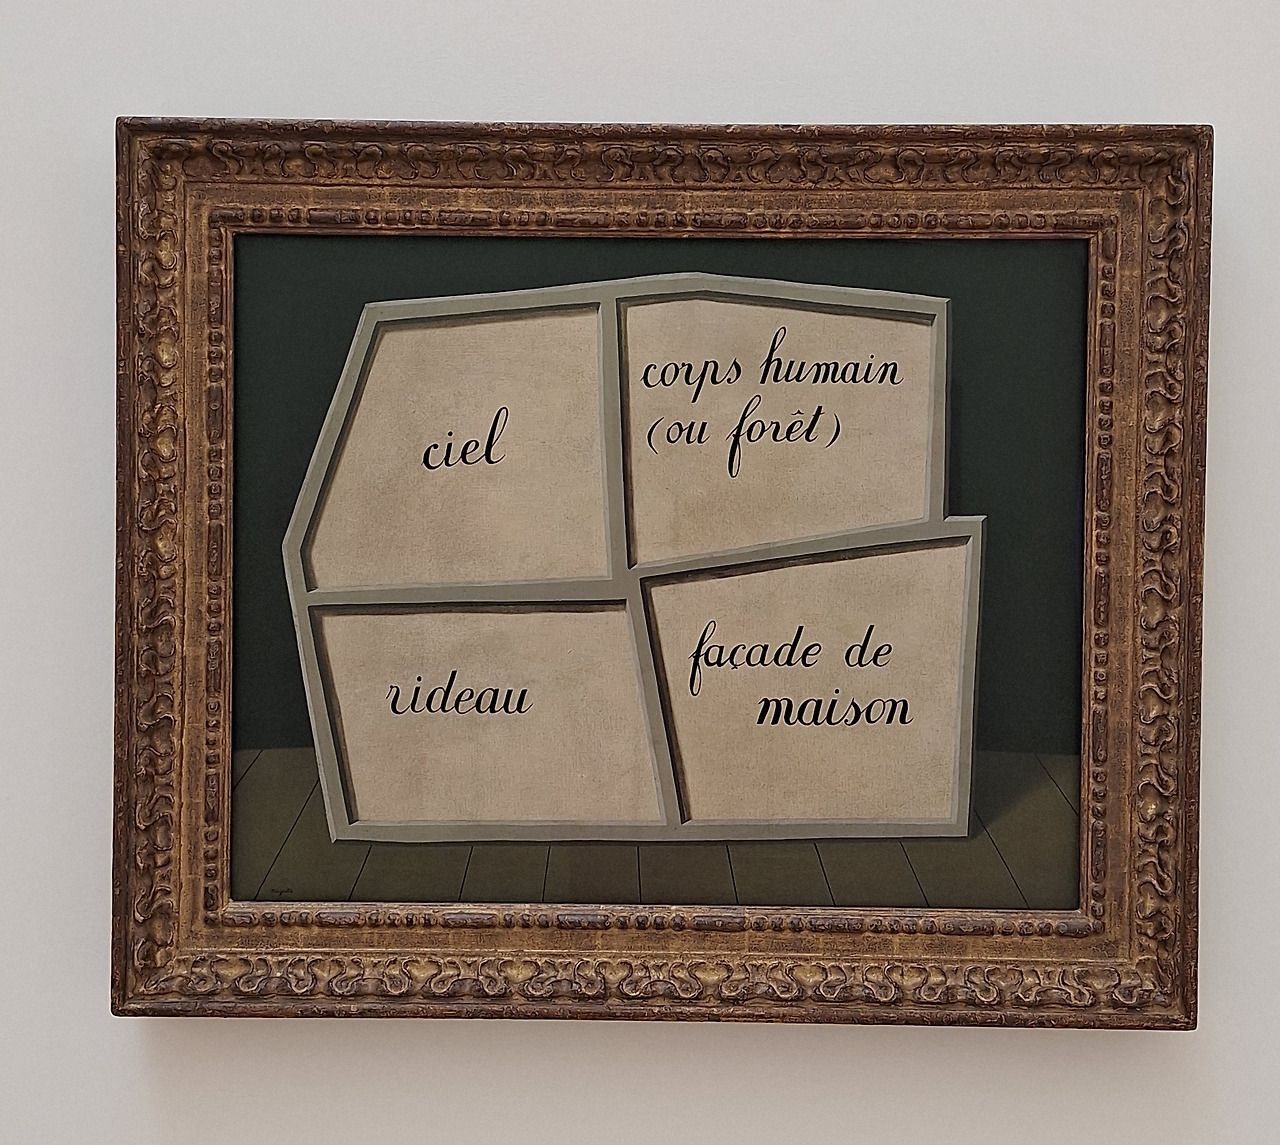 ciel
corps humain
(ou forêt)
rideau
façade de
maison
Magritte